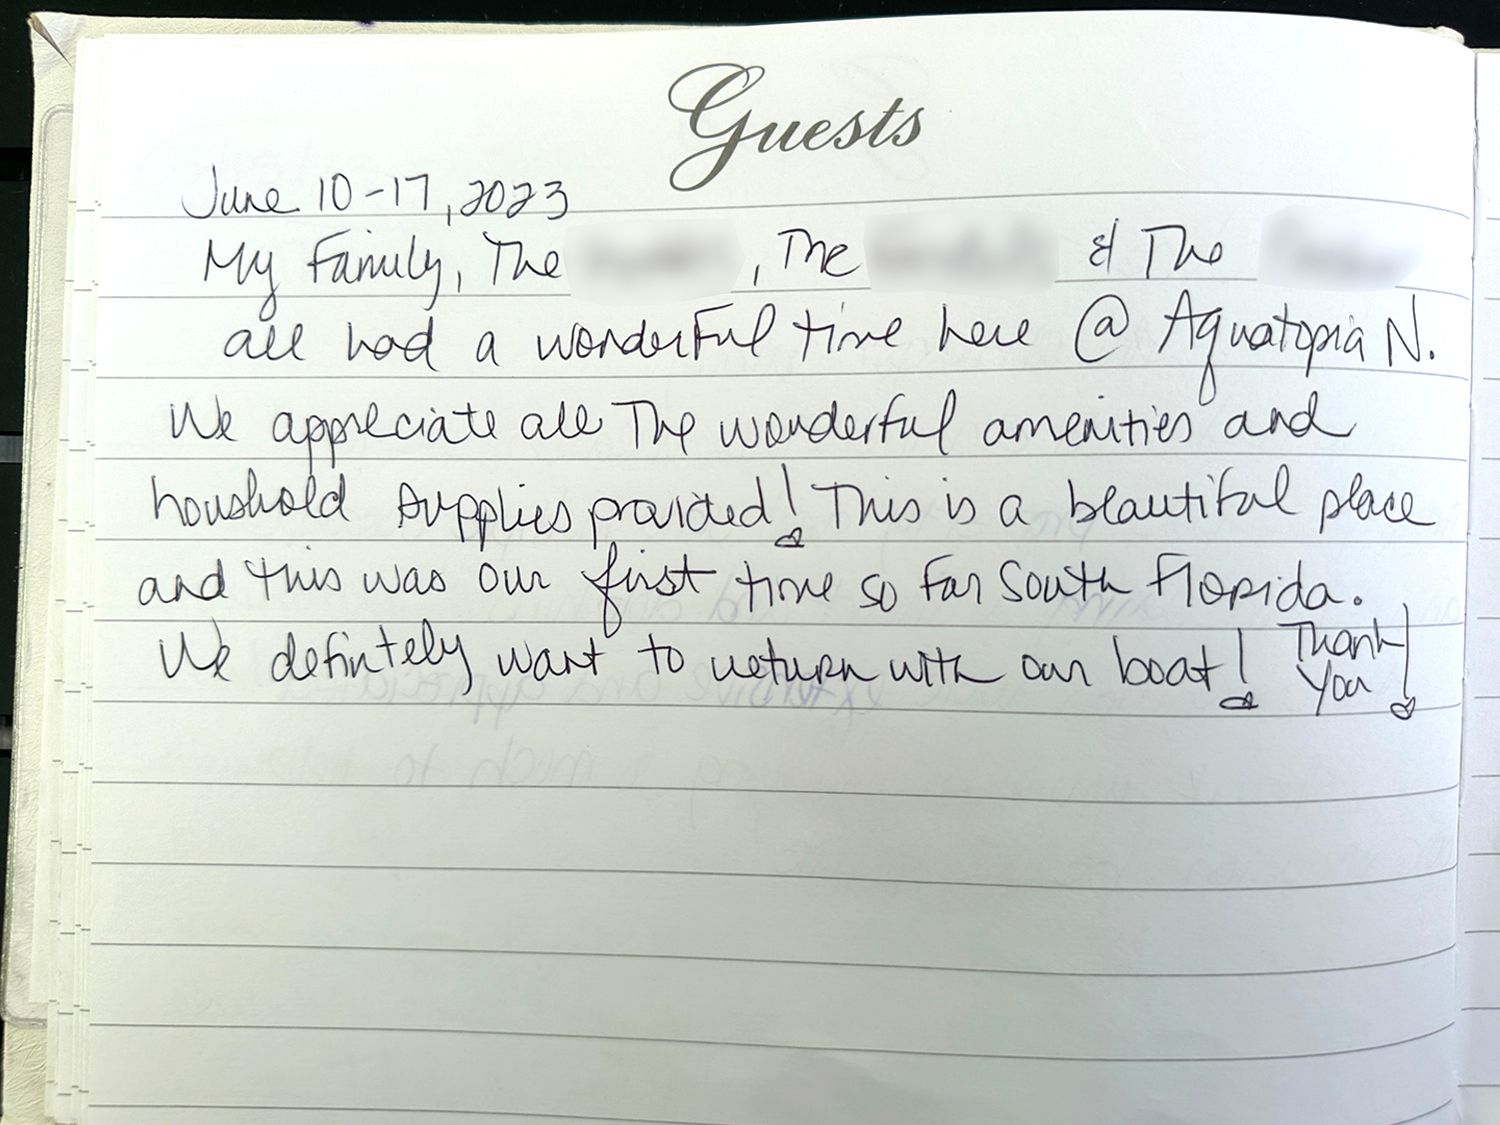 Guests
June 10-17, 2023
My Family, The , The & The
all had a wonderful time here @ Aquatopia N.
We appreciate all The wonderful amenities and
houshold supplies provided! This is a beautiful place
and this was our first time so far South Florida.
We defintely want to return with our boat! Thank
You!